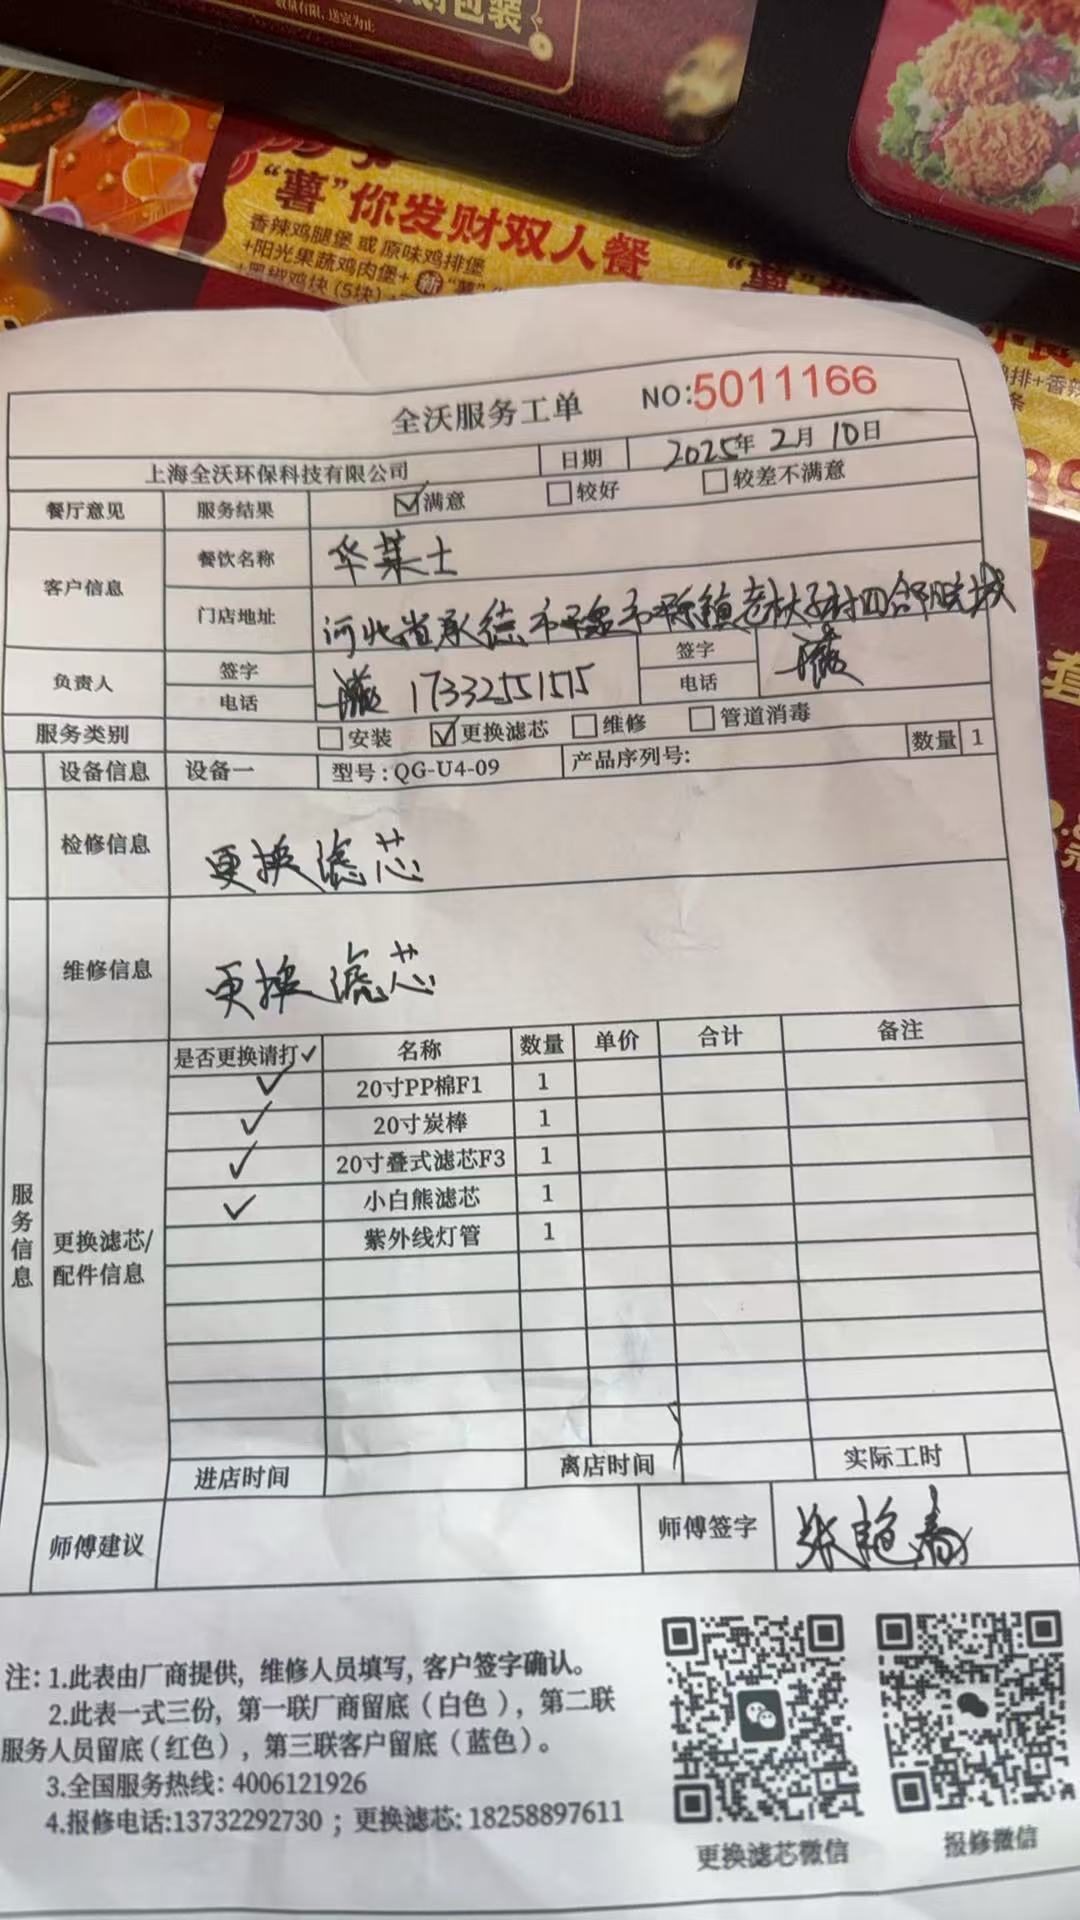 数量有限, 送完为止
“薯”你发财双人餐
香辣鸡腿堡 或 原味鸡排堡
+阳光果蔬鸡肉堡+ 新 “薯”
黑椒鸡块 (5块)
全沃服务工单 NO:5011166
上海全沃环保科技有限公司 日期 2025年 2月 10日
餐厅意见 服务结果 ☑满意 □较好 □较差不满意
客户信息 餐饮名称 华莱士
门店地址 河北省承德市平泉市平泉镇老杖子村四合胜院城
负责人 签字 签字
电话 17332551515 电话
服务类别 □安装 ☑更换滤芯 □维修 □管道消毒
设备信息 设备一 型号:QG-U4-09 产品序列号: 数量 1
检修信息 更换滤芯
维修信息 更换滤芯
服务信息
更换滤芯/配件信息
是否更换请打✓ 名称 数量 单价 合计 备注
✓ 20寸PP棉F1 1
✓ 20寸炭棒 1
✓ 20寸叠式滤芯F3 1
✓ 小白熊滤芯 1
紫外线灯管 1
进店时间 离店时间 实际工时
师傅建议 师傅签字 张艳春
注: 1.此表由厂商提供, 维修人员填写, 客户签字确认。
2.此表一式三份, 第一联厂商留底 (白色), 第二联
服务人员留底 (红色), 第三联客户留底 (蓝色)。
3.全国服务热线: 4006121926
4.报修电话:13732292730 ; 更换滤芯: 18258897611
更换滤芯微信 报修微信